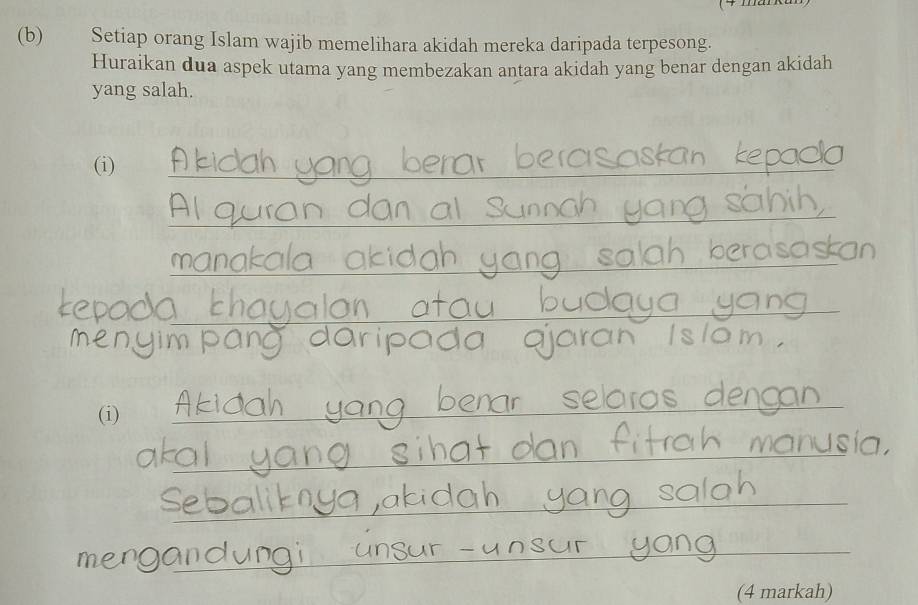 (4 markah)
(b) Setiap orang Islam wajib memelihara akidah mereka daripada terpesong.
Huraikan dua aspek utama yang membezakan antara akidah yang benar dengan akidah
yang salah.
(i) Akidah yang benar berasaskan kepada
Al quran dan al Sunnah yang sahih,
manakala akidah yang salah berasaskan
kepada khayalan atau budaya yang
menyimpang daripada ajaran Islam.
(i) Akidah yang benar selaras dengan
akal yang sihat dan fitrah manusia.
Sebaliknya, akidah yang salah
mengandungi unsur-unsur yang
(4 markah)